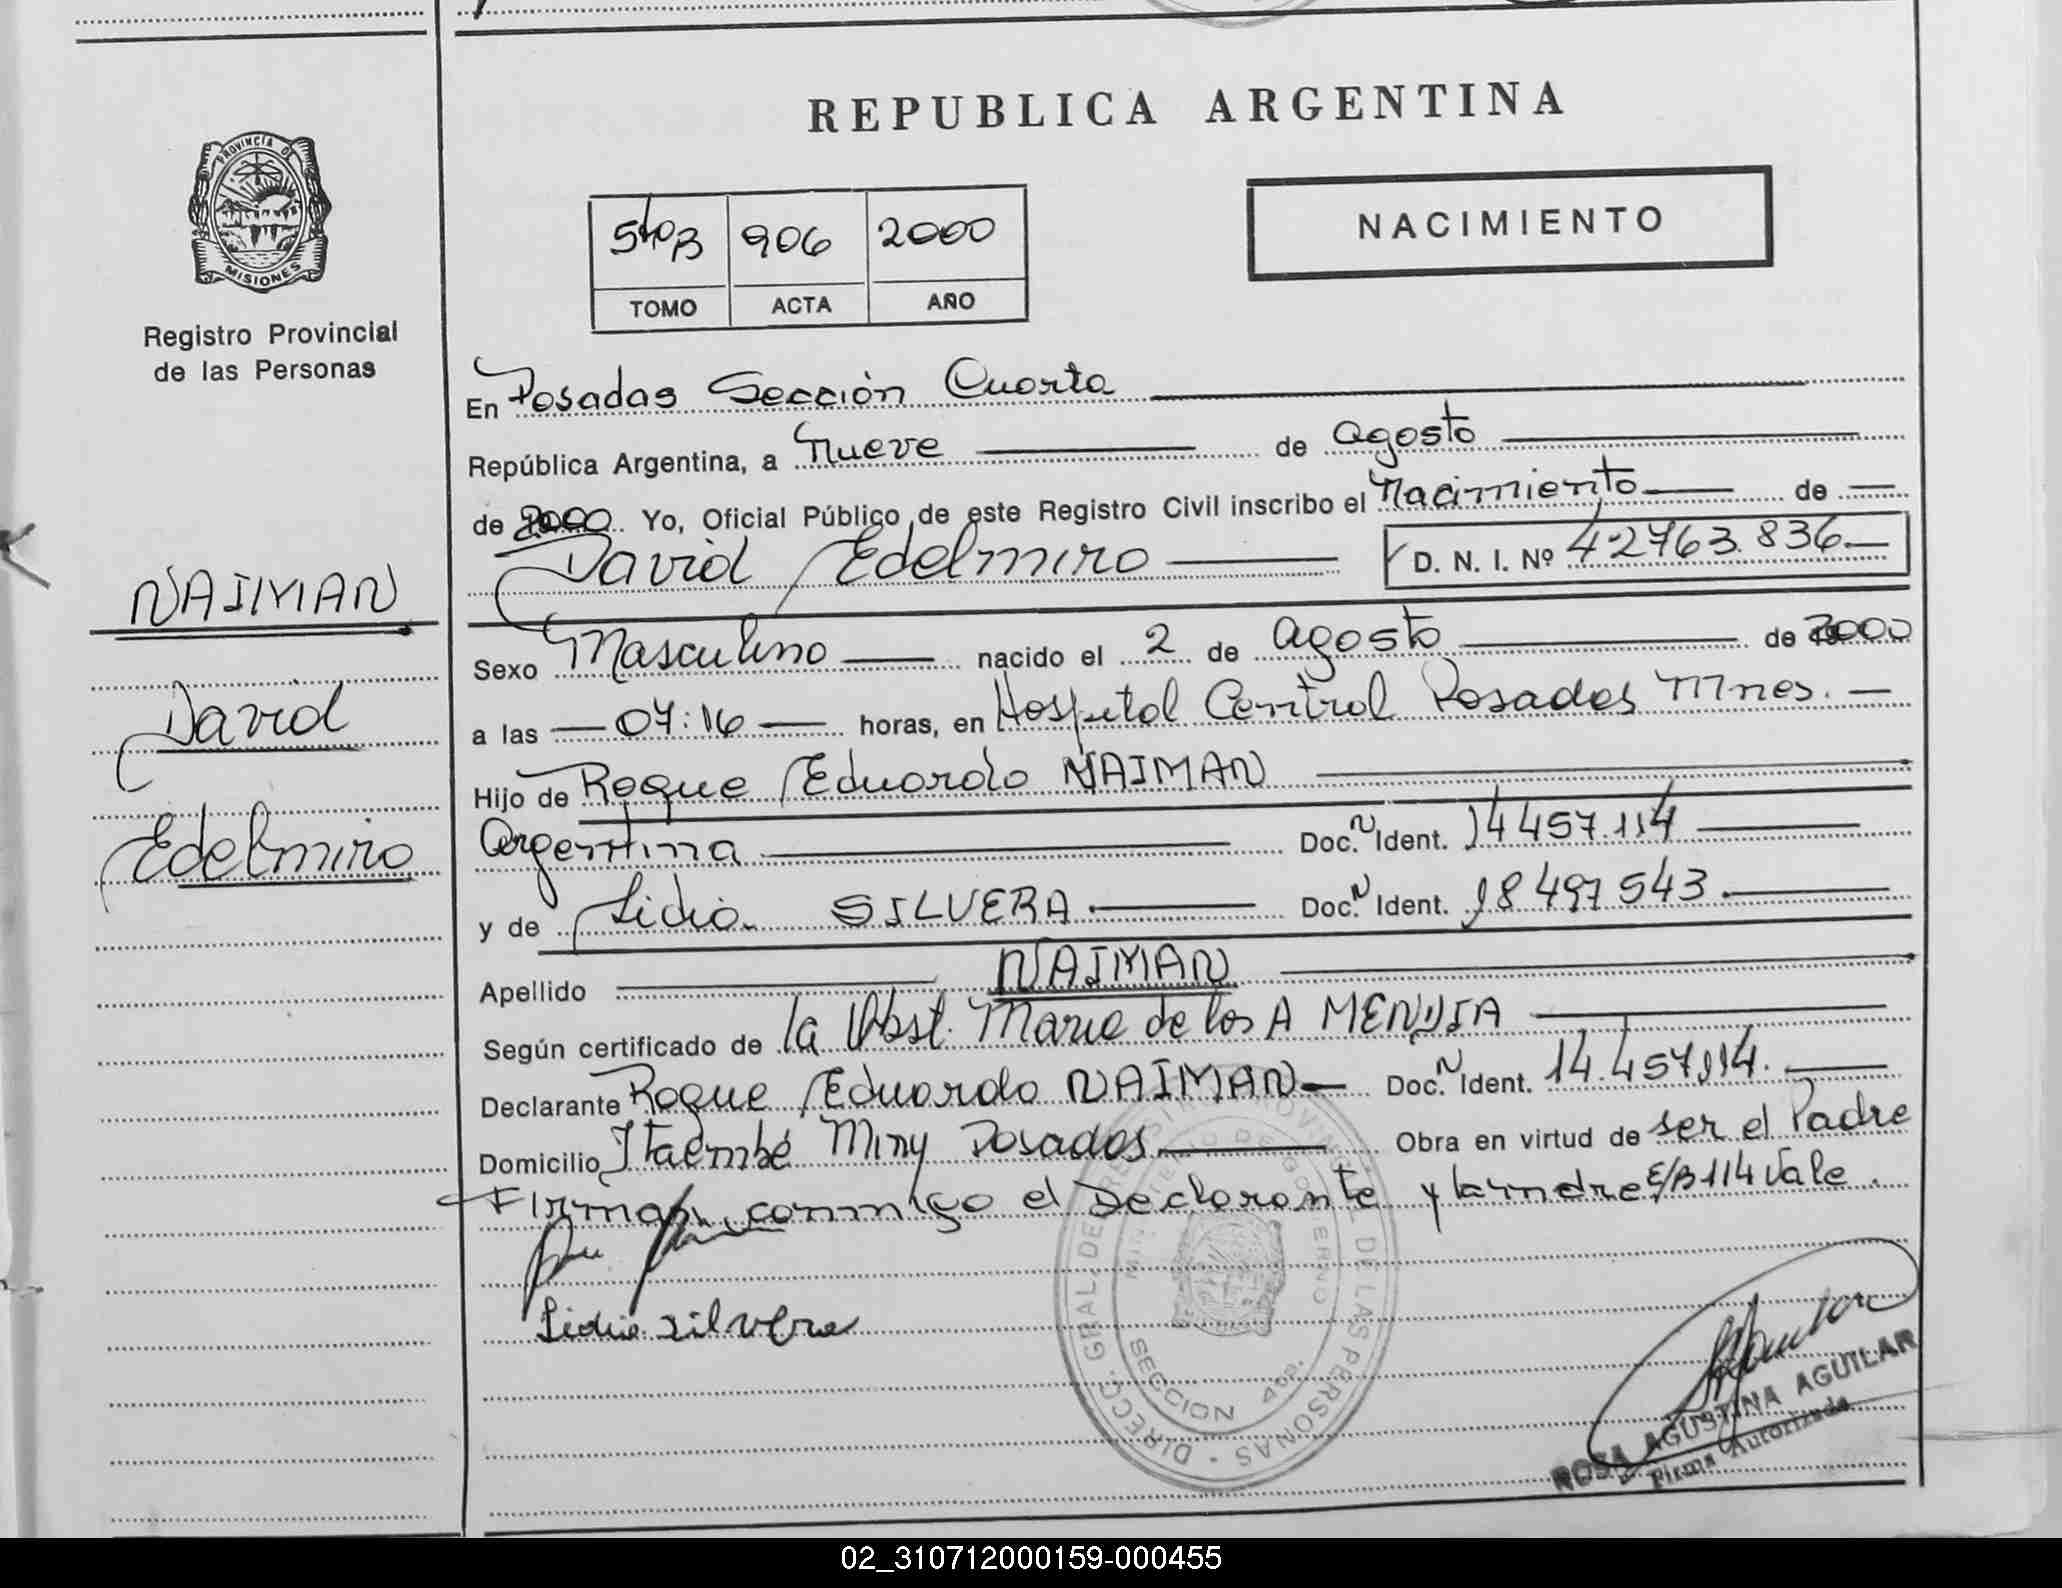 REPUBLICA ARGENTINA
PROVINCIA DE
MISIONES
Registro Provincial
de las Personas
5toB 906 2000
TOMO ACTA AÑO
NACIMIENTO
NAIMAN
David
Edelmiro
En Posadas Sección Cuarta
República Argentina, a Nueve de agosto
de 2000 Yo, Oficial Público de este Registro Civil inscribo el Nacimiento de
David Edelmiro D. N. I. Nº 42763.836
Sexo Masculino nacido el 2 de agosto de 2000
a las 07:16 horas, en Hospital Central Posadas Mnes.
Hijo de Roque Eduardo NAIMAN
Argentina Doc. N Ident. 14457.114
y de Lidia SILVERA Doc. N Ident. 18497543
Apellido NAIMAN
Según certificado de la Obst. Maria de los A
Declarante Roque Eduardo NAIMAN Doc. N Ident. 14.457.114.
Domicilio Itaembé Miny Posadas Obra en virtud de ser el Padre
Firman conmigo el Declarante y la madre E/B 114 Vale.
Lidia Silvera
DIRECC. GRAL. DE REGISTRO PROVINCIAL DE LAS PERSONAS
MINISTERIO DE GOBIERNO
SECCION 4ta.
ROSA AGUSTINA AGUILAR
Firma Autorizada
02_310712000159-000455